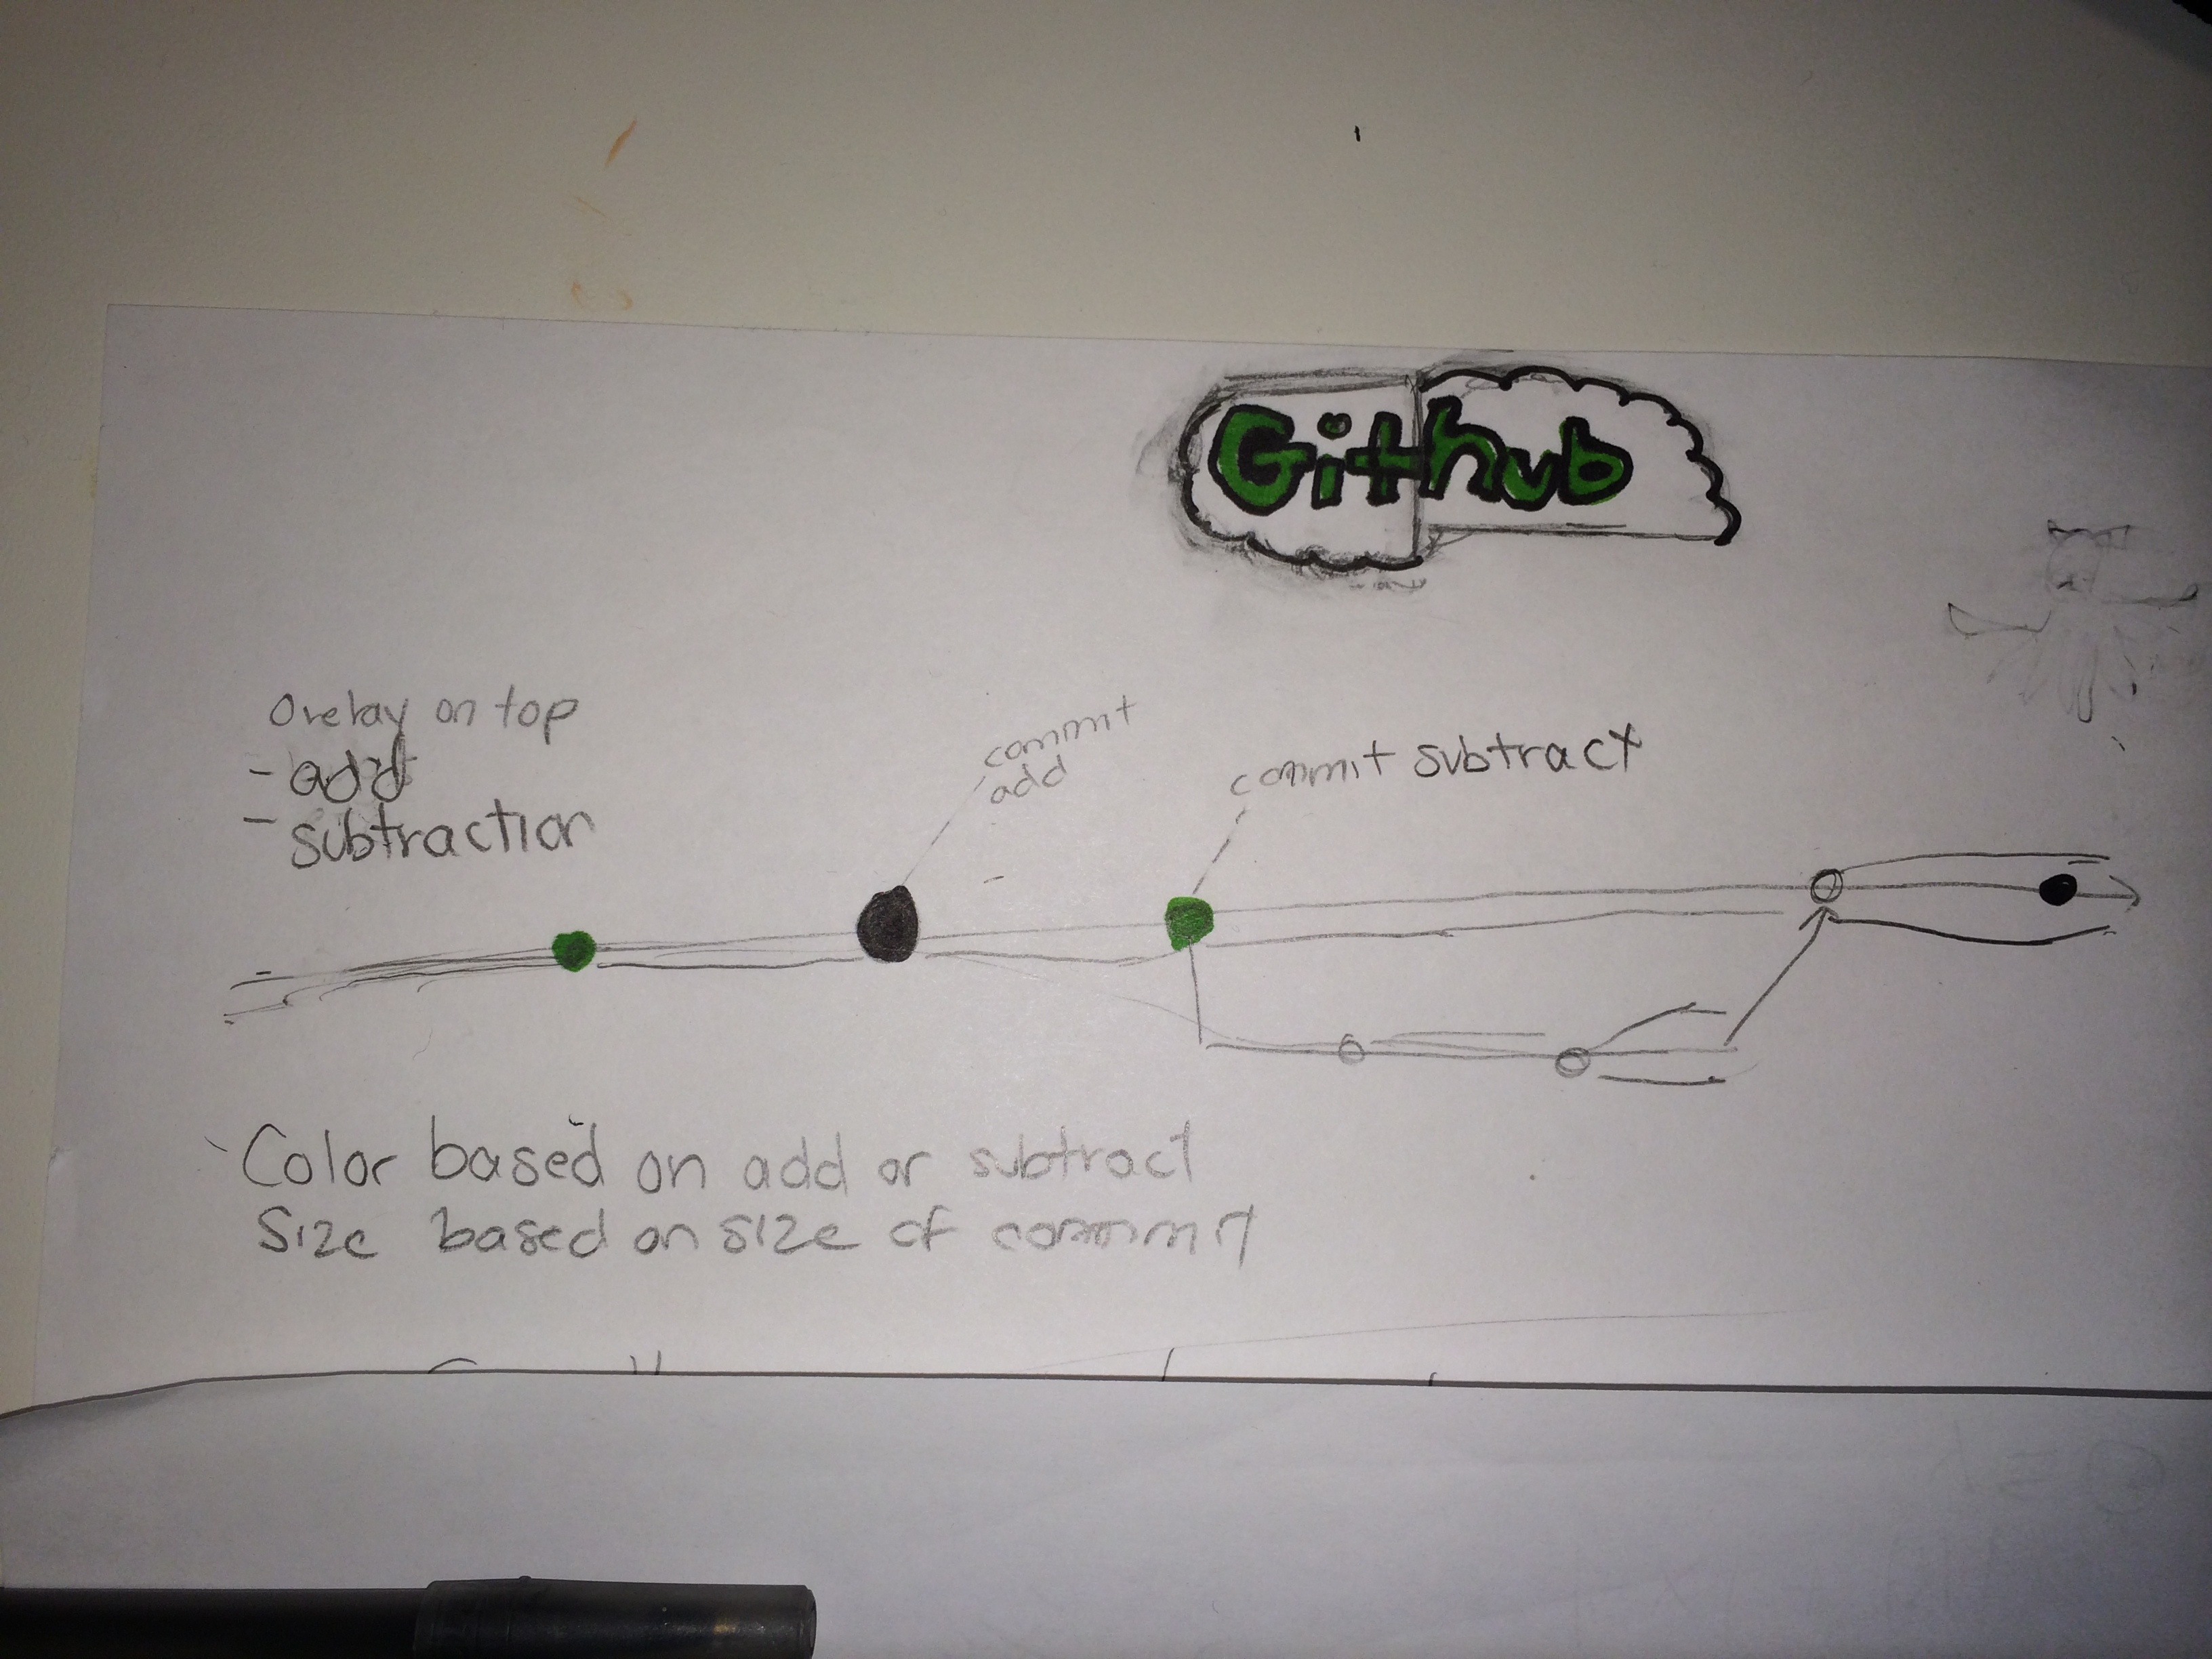 Github
Overlay on top
- add
- subtraction
commit
add
commit subtract
Color based on add or subtract
Size based on size of commit